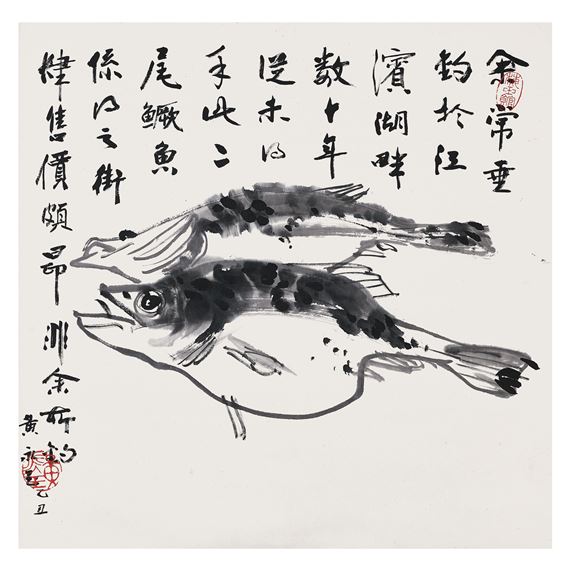 余常垂
釣於江
濱湖畔
数十年
從未得
手此二
尾鱖魚
係得之街
肆售價頗昂非余所釣
黄永玉
乙丑